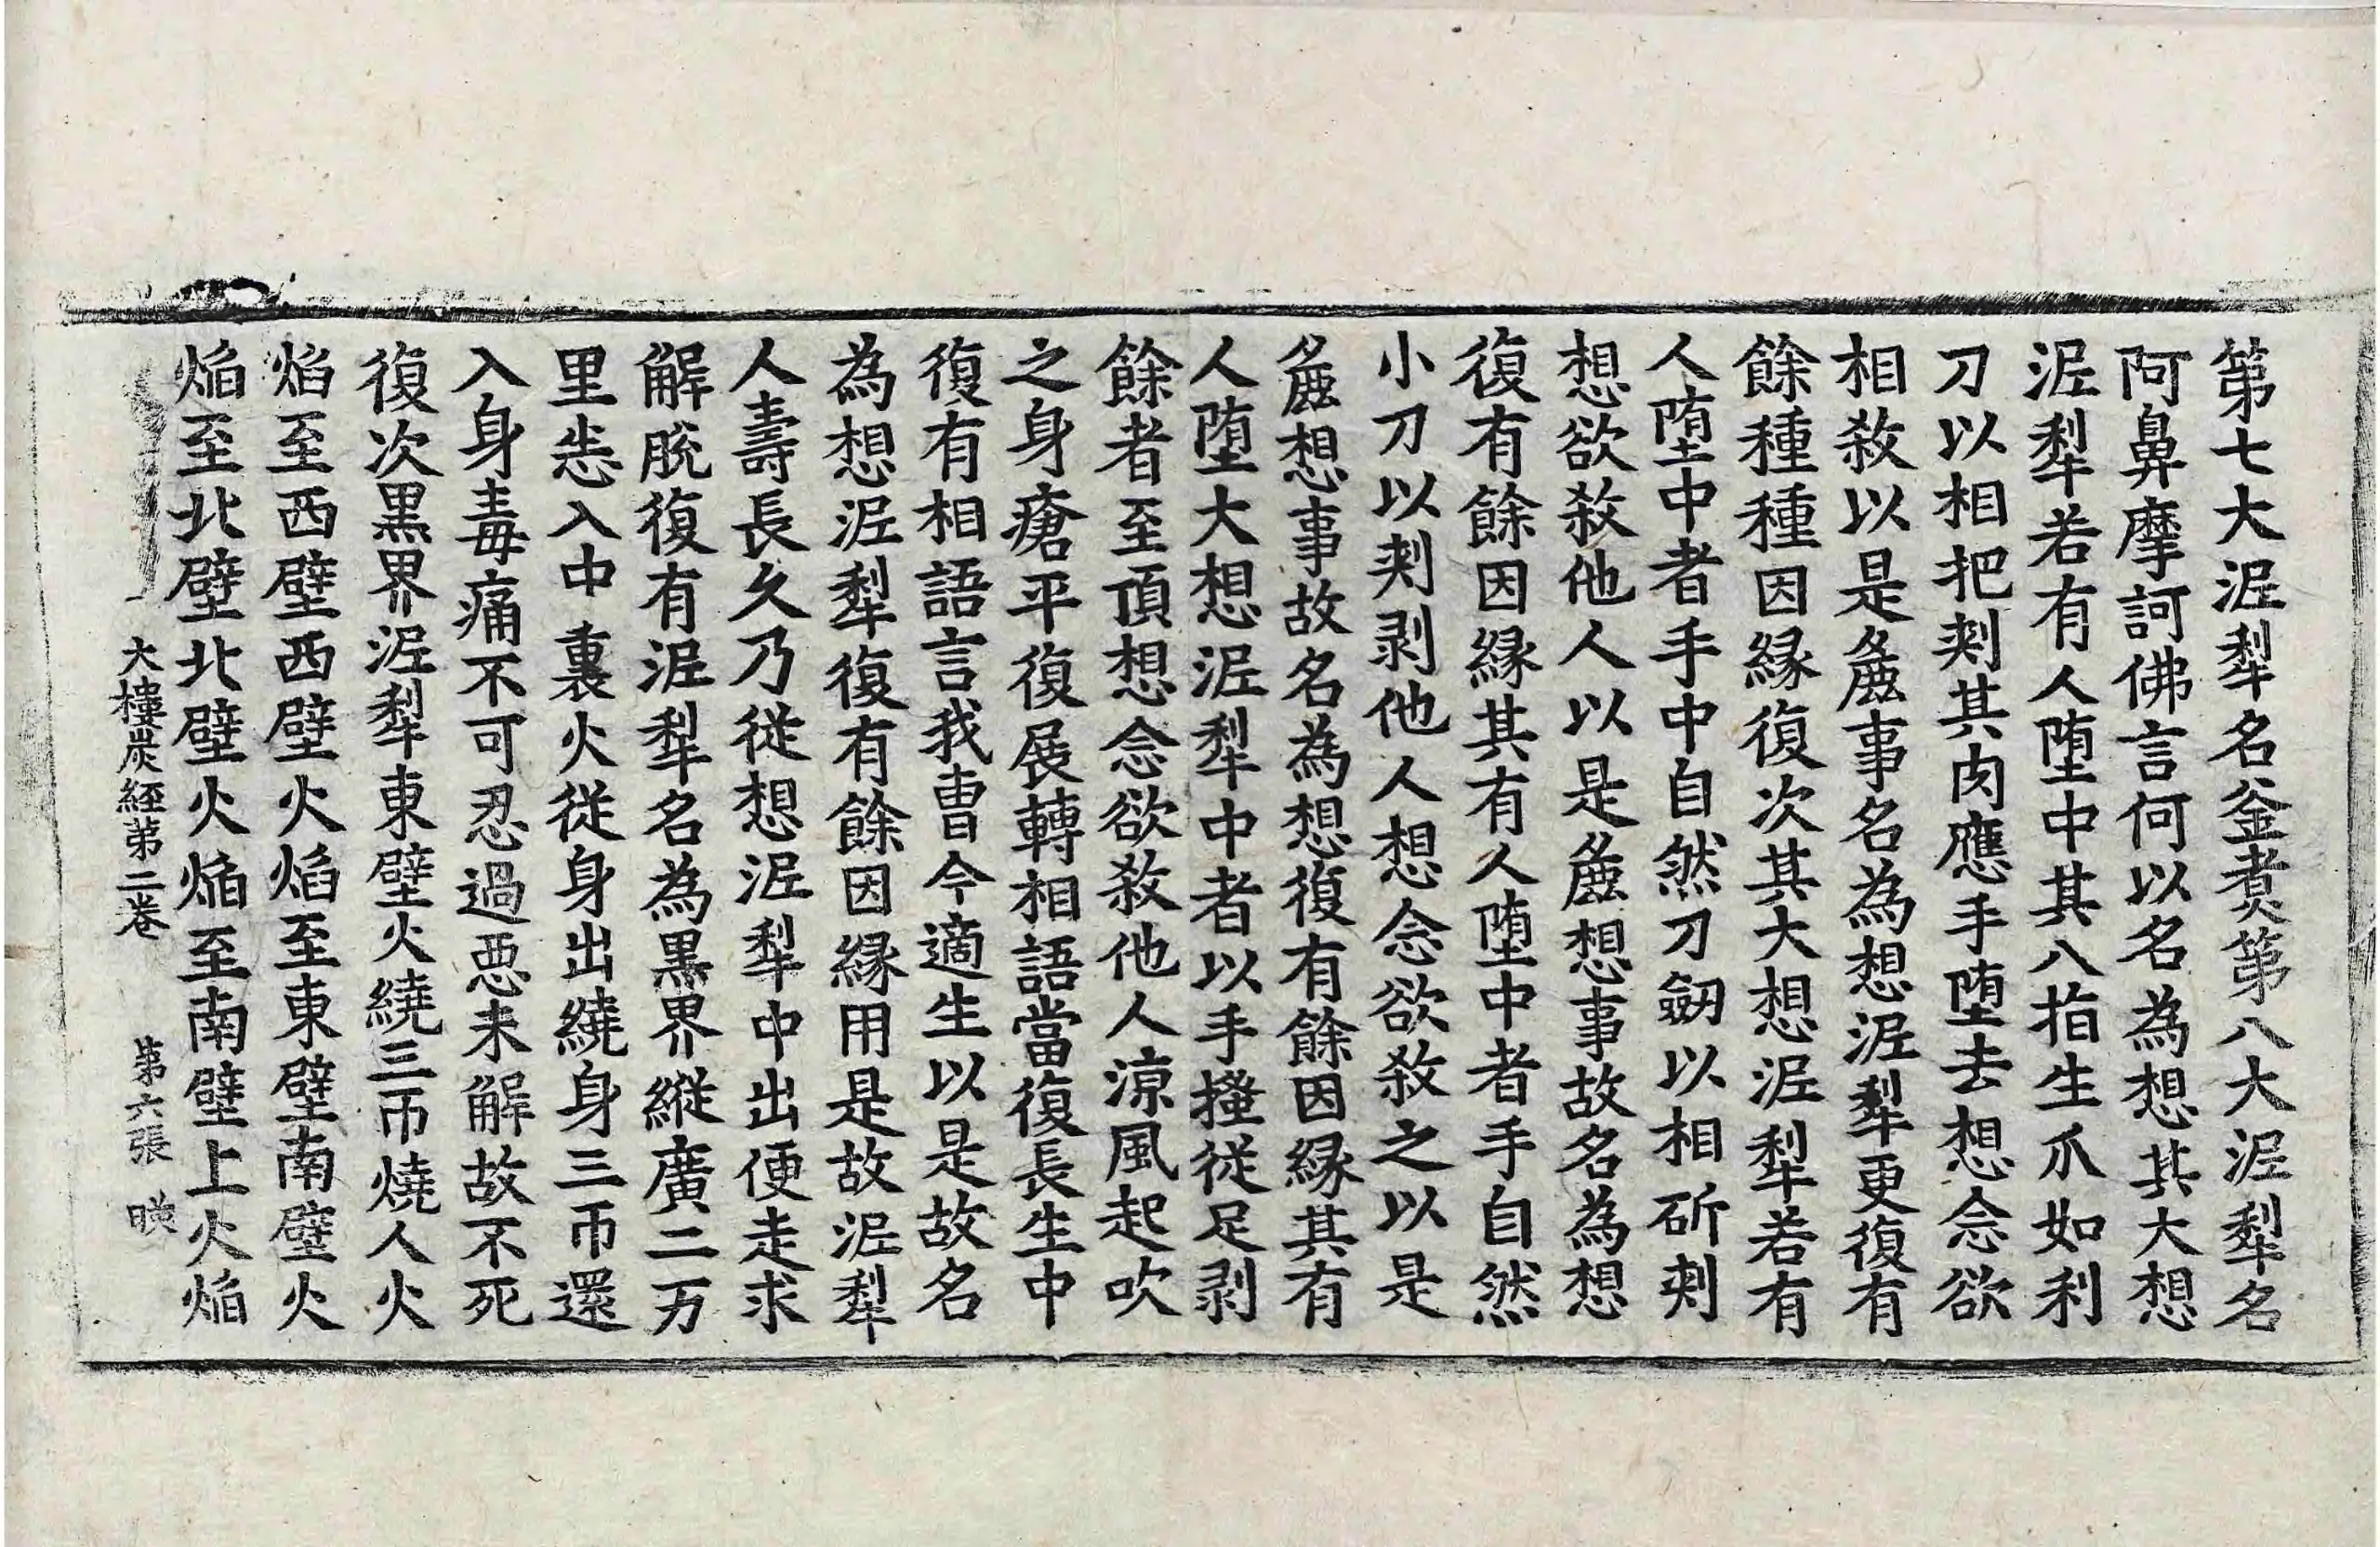 第七大泥犁名釜煑第八大泥犁名
阿鼻摩訶佛言何以名為想其大想
泥犁若有人墮中其八指生爪如利
刀以相把刾其肉應手墮去想念欲
相敘以是麁事名為想泥犁更復有
餘種種因緣復次其大想泥犁若有
人墮中者手中自然刀劒以相斫刾
想欲敘他人以是麁想事故名為想
復有餘因緣其有人墮中者手自然
小刀以刾剥他人想念欲敘之以是
麁想事故名為想復有餘因緣其有
人墮大想泥犁中者以手撞從足剥
餘者至頂想念欲敘他人涼風起吹
之身瘡平復展轉相語當復長生中
復有相語言我曹今適生以是故名
為想泥犁復有餘因緣用是故泥犁
人壽長久乃從想泥犁中出便走求
解脫復有泥犁名為黒界縱廣二万
里恙入中裏火從身出繞身三帀還
入身毒痛不可忍過惡未解故不死
復次黒界泥犁東壁火繞三帀燒人火
焰至西壁西壁火焰至東壁南壁火
焰至北壁北壁火焰至南壁上火焰
大樓炭經第二卷 第六張 暎